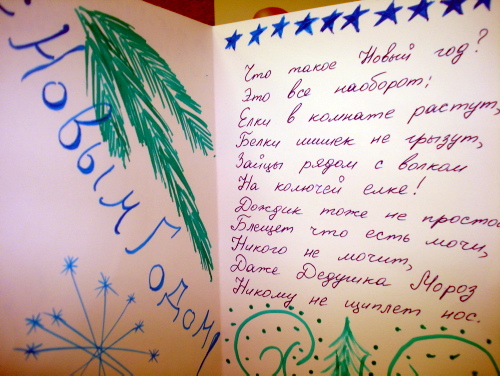 С Новым Годом!
Что такое Новый год?
Это все наоборот;
Елки в комнате растут,
Белки шишек не грызут,
Зайцы рядом с волком
На колючей елке!
Дождик тоже не простой
Блещет что есть мочи,
Никого не мочит,
Даже Дедушка Мороз
Никому не щиплет нос.